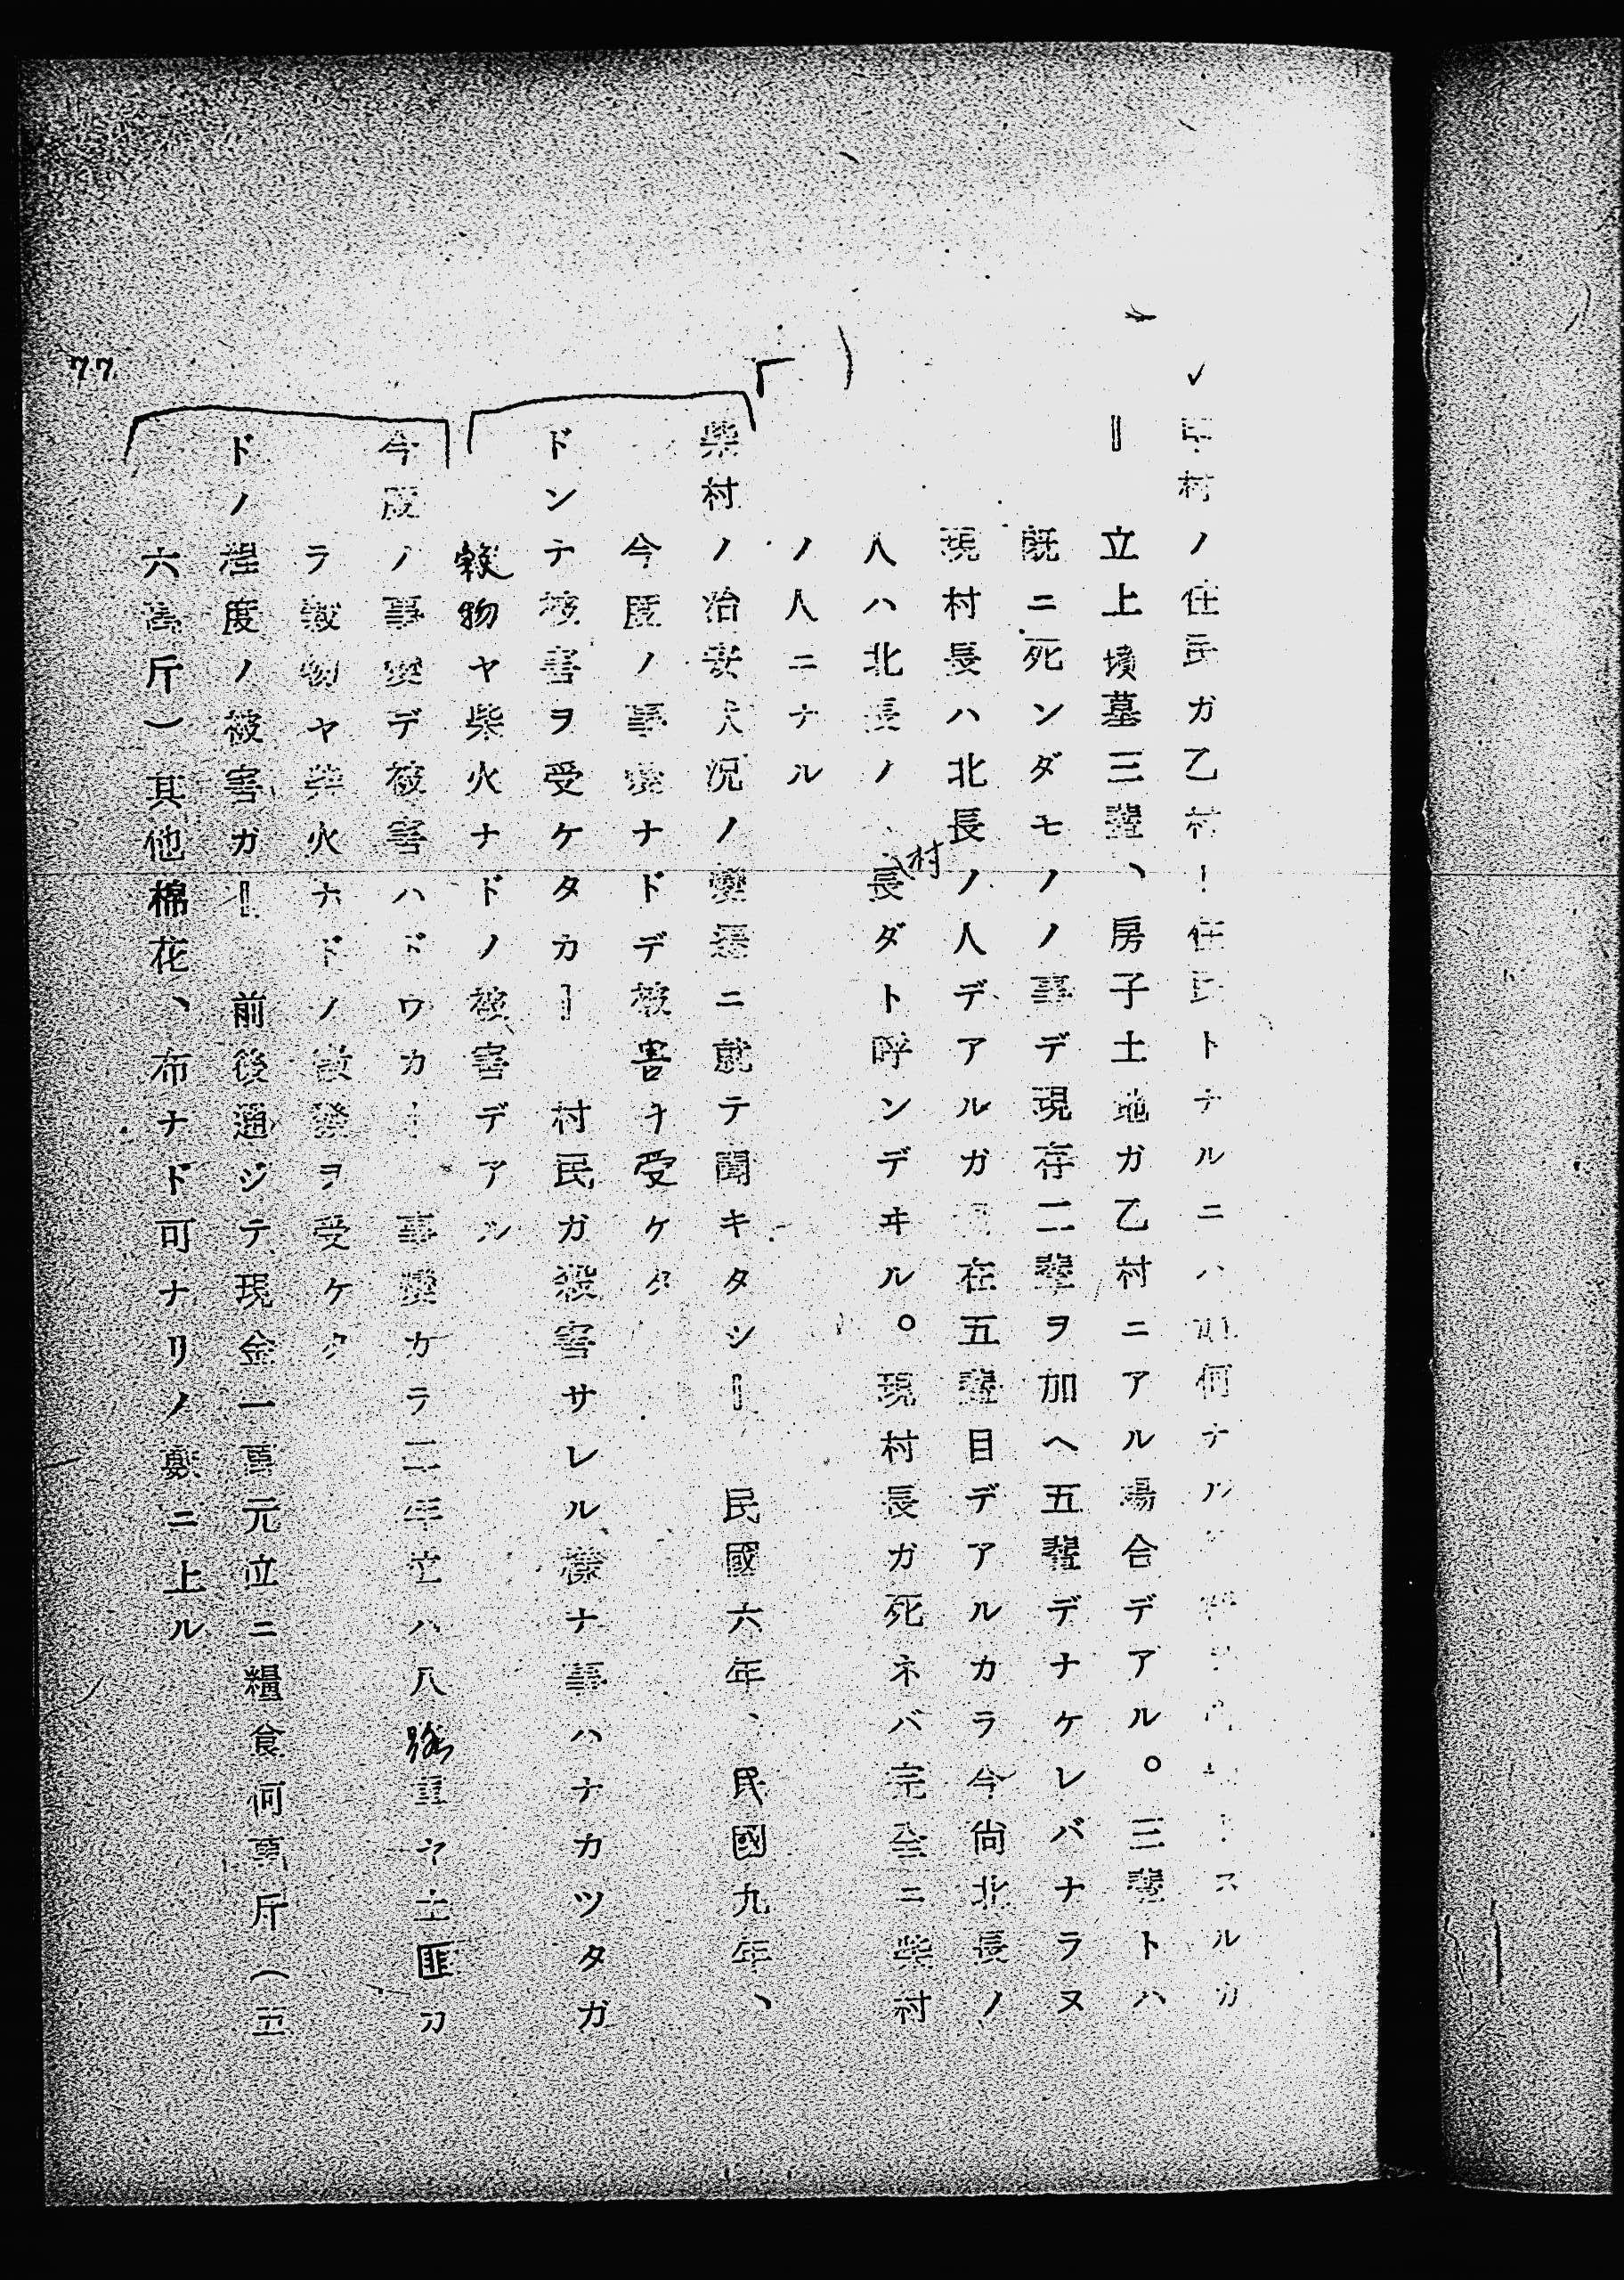 甲村ノ住民ガ乙村ノ住民トナルニハ如何ナル スルカ
ー 立上墳墓三輩、房子土地ガ乙村ニアル場合デアル。三輩トハ
既ニ死ンダモノノ事デ現存二輩ヲ加ヘ五輩デナケレバナラヌ
現村長ハ北長ノ人デアルガ現在五輩目デアルカラ今尚北長ノ
人ハ北長ノ村長ダト呼ンデヰル。現村長ガ死ネバ完全ニ柴村
ノ人ニナル
柴村ノ治安状況ノ變遷ニ就テ聞キタシー 民國六年、民國九年、
今度ノ事變ナドデ被害ヲ受ケタ
ドンナ被害ヲ受ケタカー 村民ガ殺害サレル樣ナ事ハナカツタガ
穀物ヤ柴火ナドノ被害デアル
今度ノ事變デ被害ハドウカー 事變カラ二年立ハ八路軍ヤ土匪カ
ラ穀物ヤ柴火ナドノ徴發ヲ受ケタ
ドノ程度ノ被害ガー 前後通ジテ現金一萬元立ニ糧食何萬斤(五
六萬斤)其他棉花、布ナド可ナリノ數ニ上ル
77